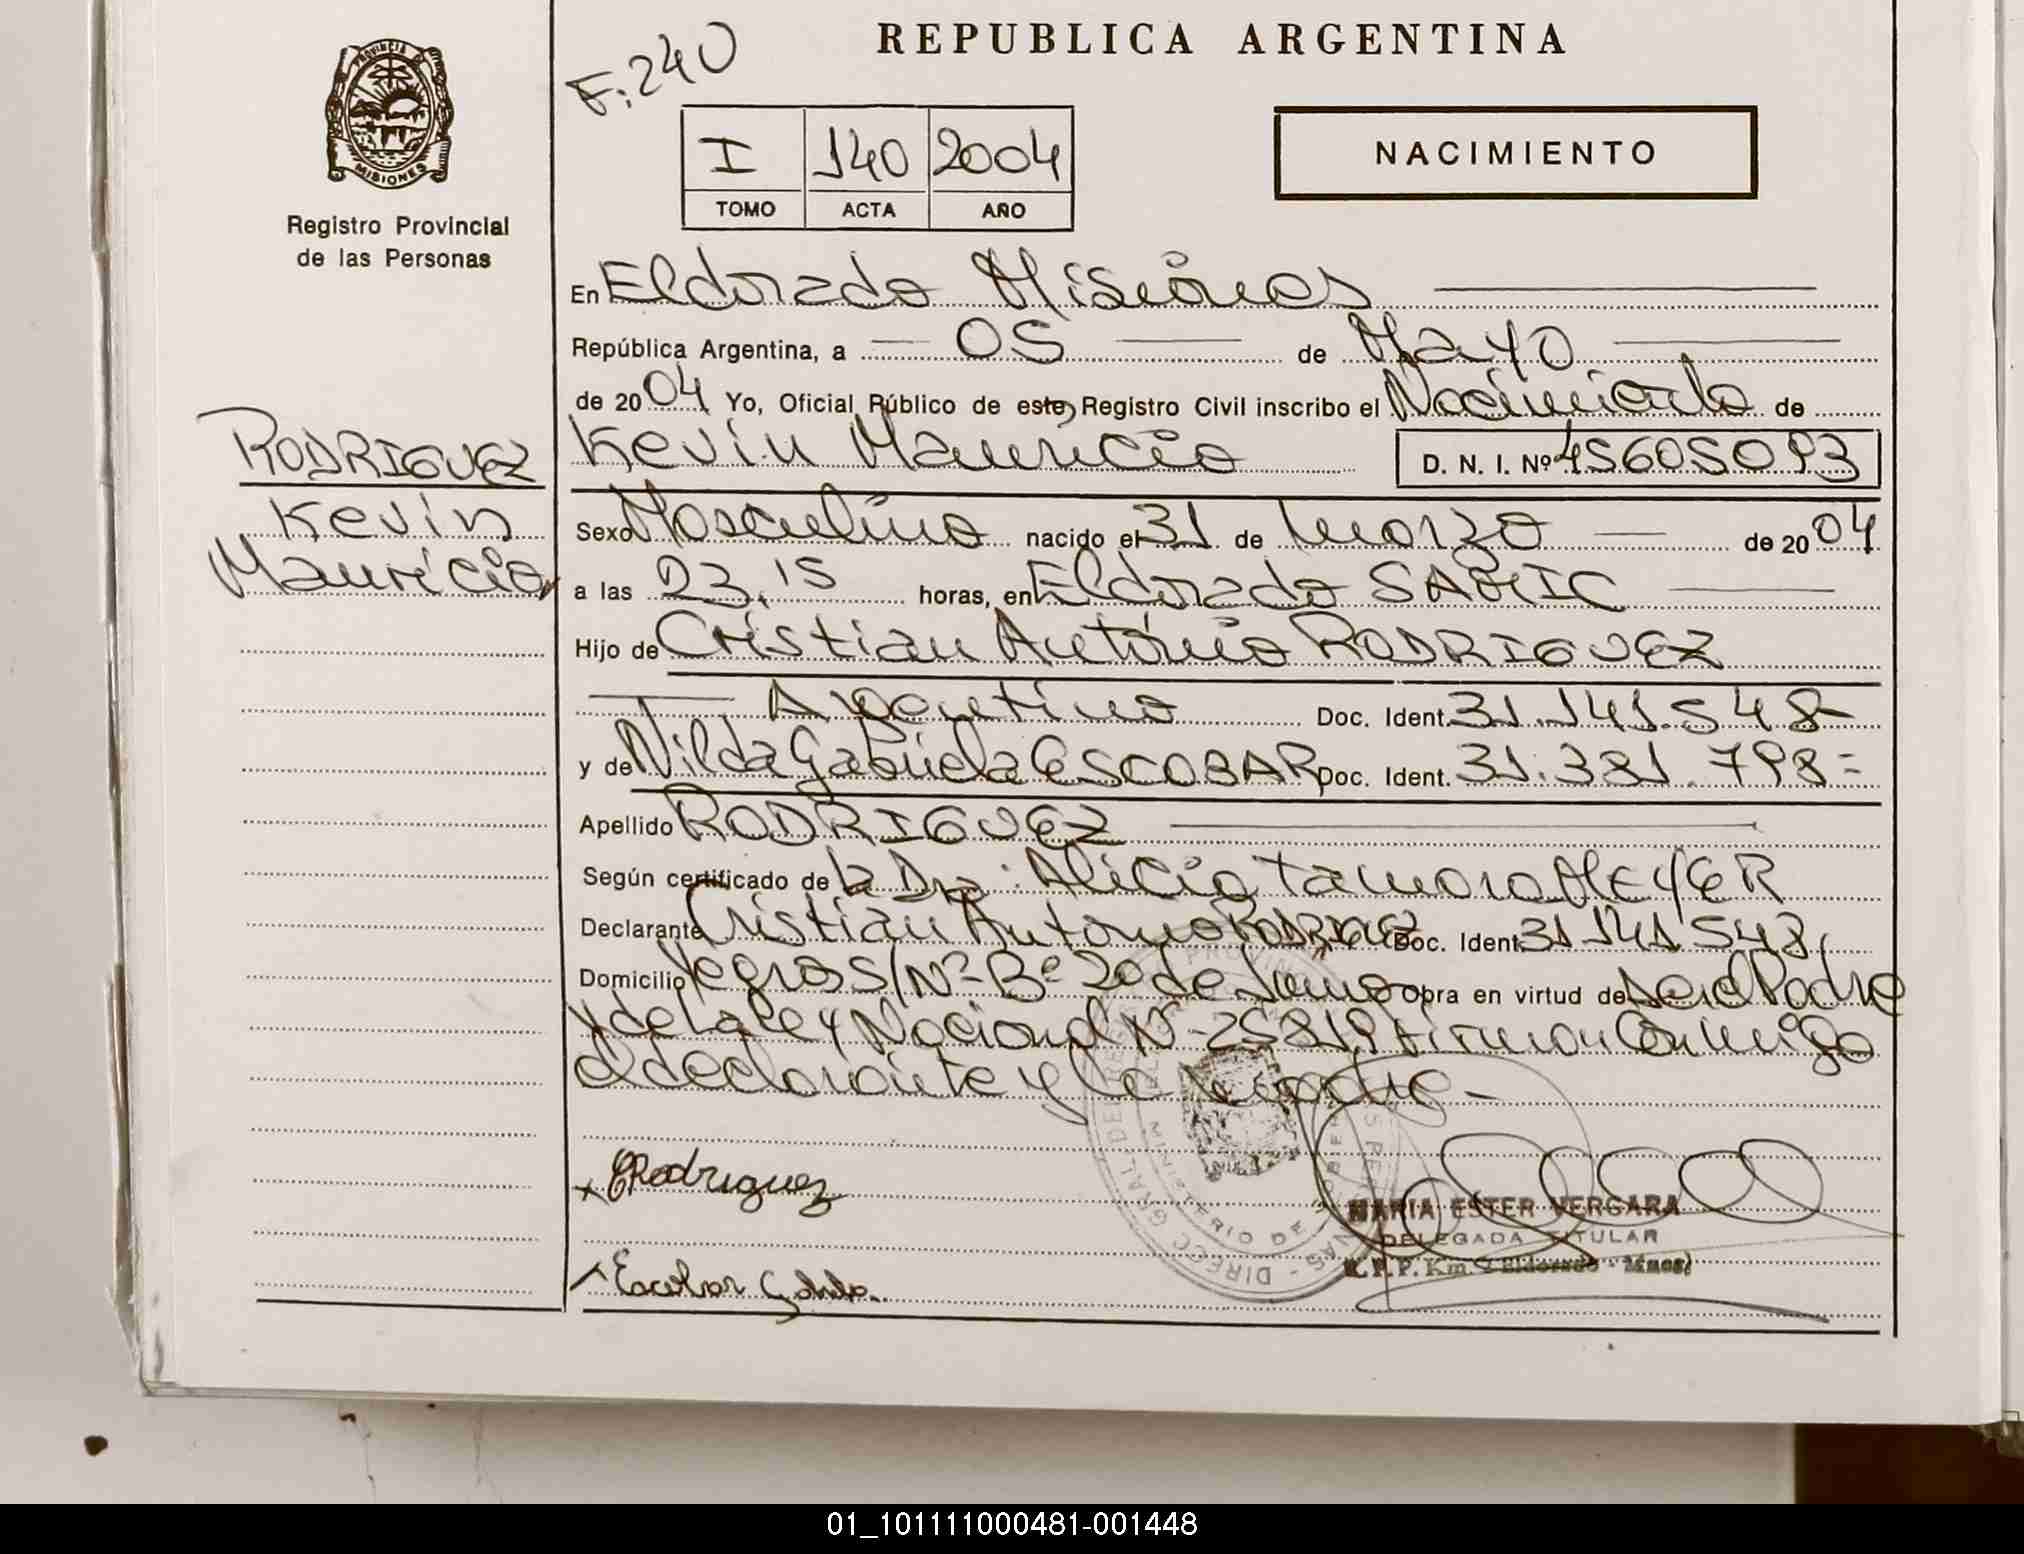 PROVINCIA
MISIONES
Registro Provincial
de las Personas
REPUBLICA ARGENTINA
F: 240
I 140 2004
TOMO ACTA AÑO
NACIMIENTO
En Eldorado Misiones
República Argentina, a 05 de Mayo
de 2004 Yo, Oficial Público de este, Registro Civil inscribo el Nacimiento de
Kevin Mauricio D. N. I. Nº 45605093
RODRIGUEZ
Kevin
Mauricio
Sexo Masculino nacido el 31 de marzo de 2004
a las 23.15 horas, en Eldorado SAMIC
Hijo de Cristian Antonio RODRIGUEZ
Argentino Doc. Ident. 31.141.548-
y de Nilda Gabriela ESCOBAR Doc. Ident. 31.381.798=
Apellido RODRIGUEZ
Según certificado de la Dra. Alicia Tamara MEYER
Declarante Cristian Antonio RODRIGUEZ Doc. Ident. 31.141.548,
Domicilio S/Nº Bº 20 de Junio Obra en virtud de ser el Padre
y de la Ley Nacional Nº 25819 Firman Conmigo
el declarante y la madre.-
x CRodriguez
MARIA ESTER VERGARA
DELEGADA TITULAR
R.P.P. Km. Eldorado - Mnes)
x Escobar
01_101111000481-001448